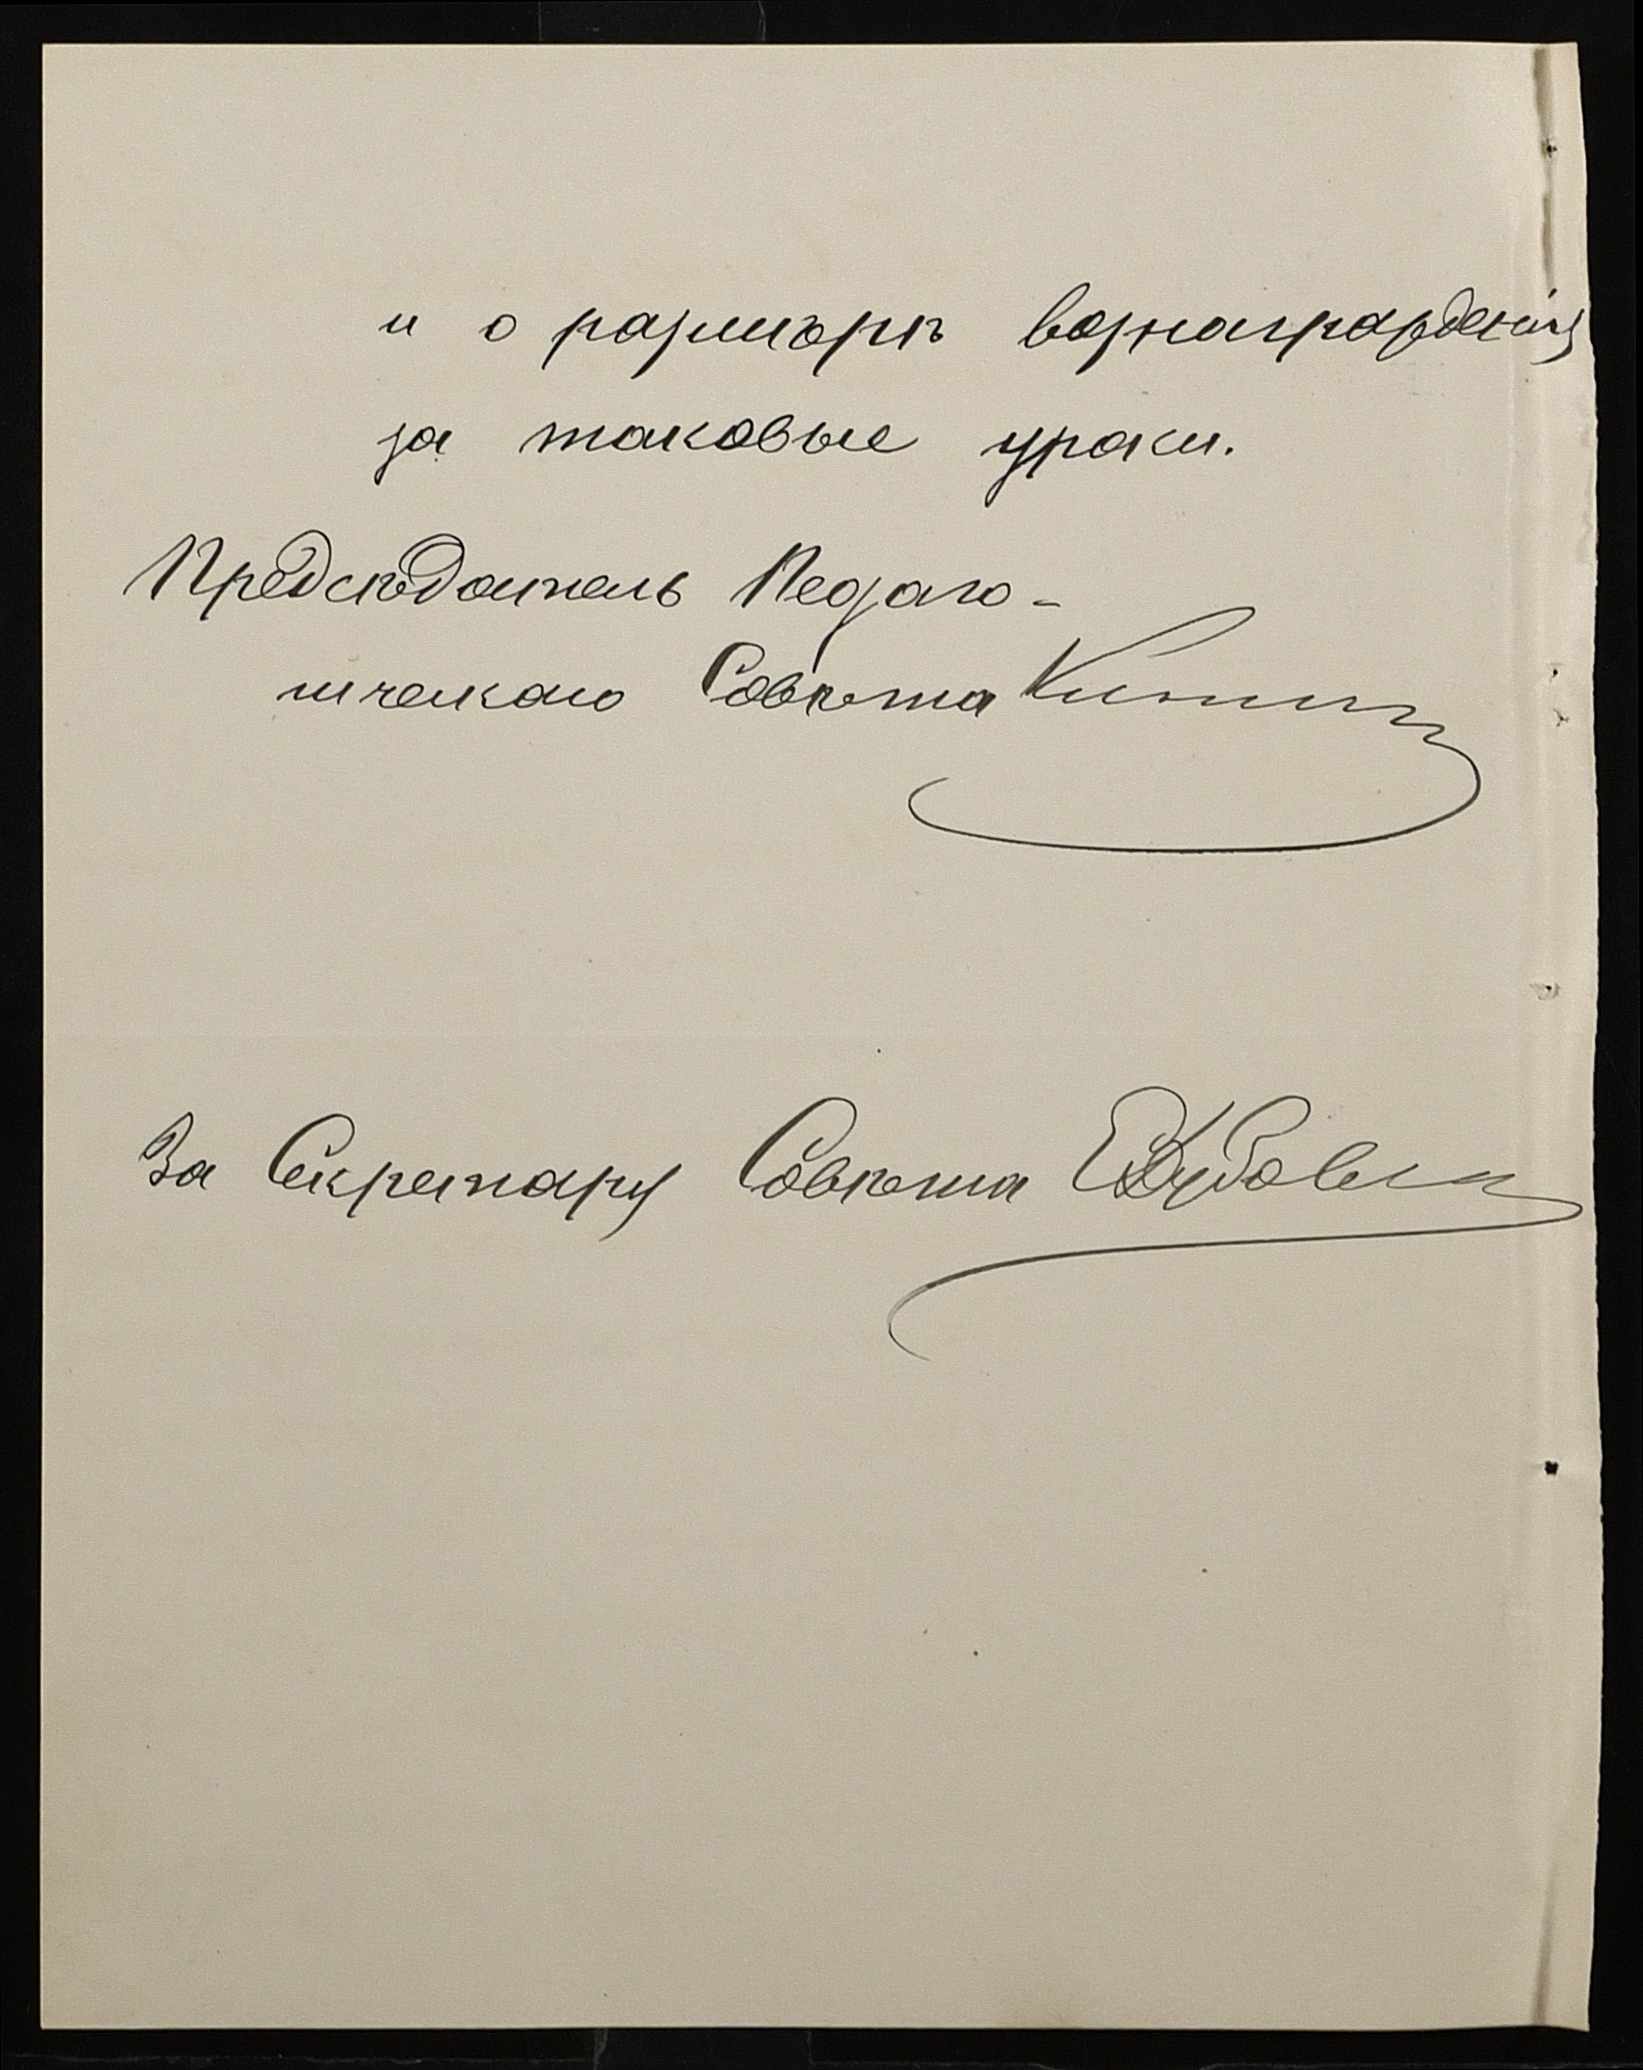 и о размѣрѣ вознагражденія
за таковые уроки.
Предсѣдатель Педаго-
гическаго Совѣта
За Секретаря Совѣта